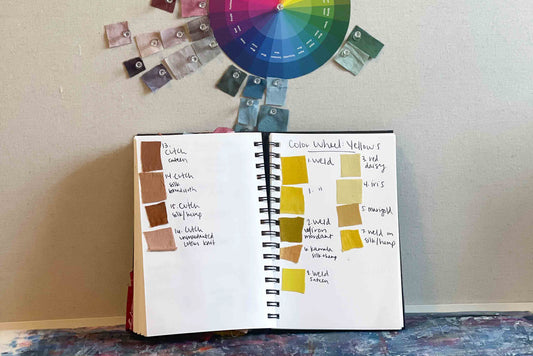 13.
Cutch
sateen
14. Cutch
silk
15. Cutch
silk/hemp
16. Cutch
Color Wheel: Yellows
1. Weld
1. "
2. Weld
w/iron
mordant
6. Kamala
silk hemp
8. Weld
sateen
3. red
daisy
4. iris
5. marigold
7. weld on
silk/hemp